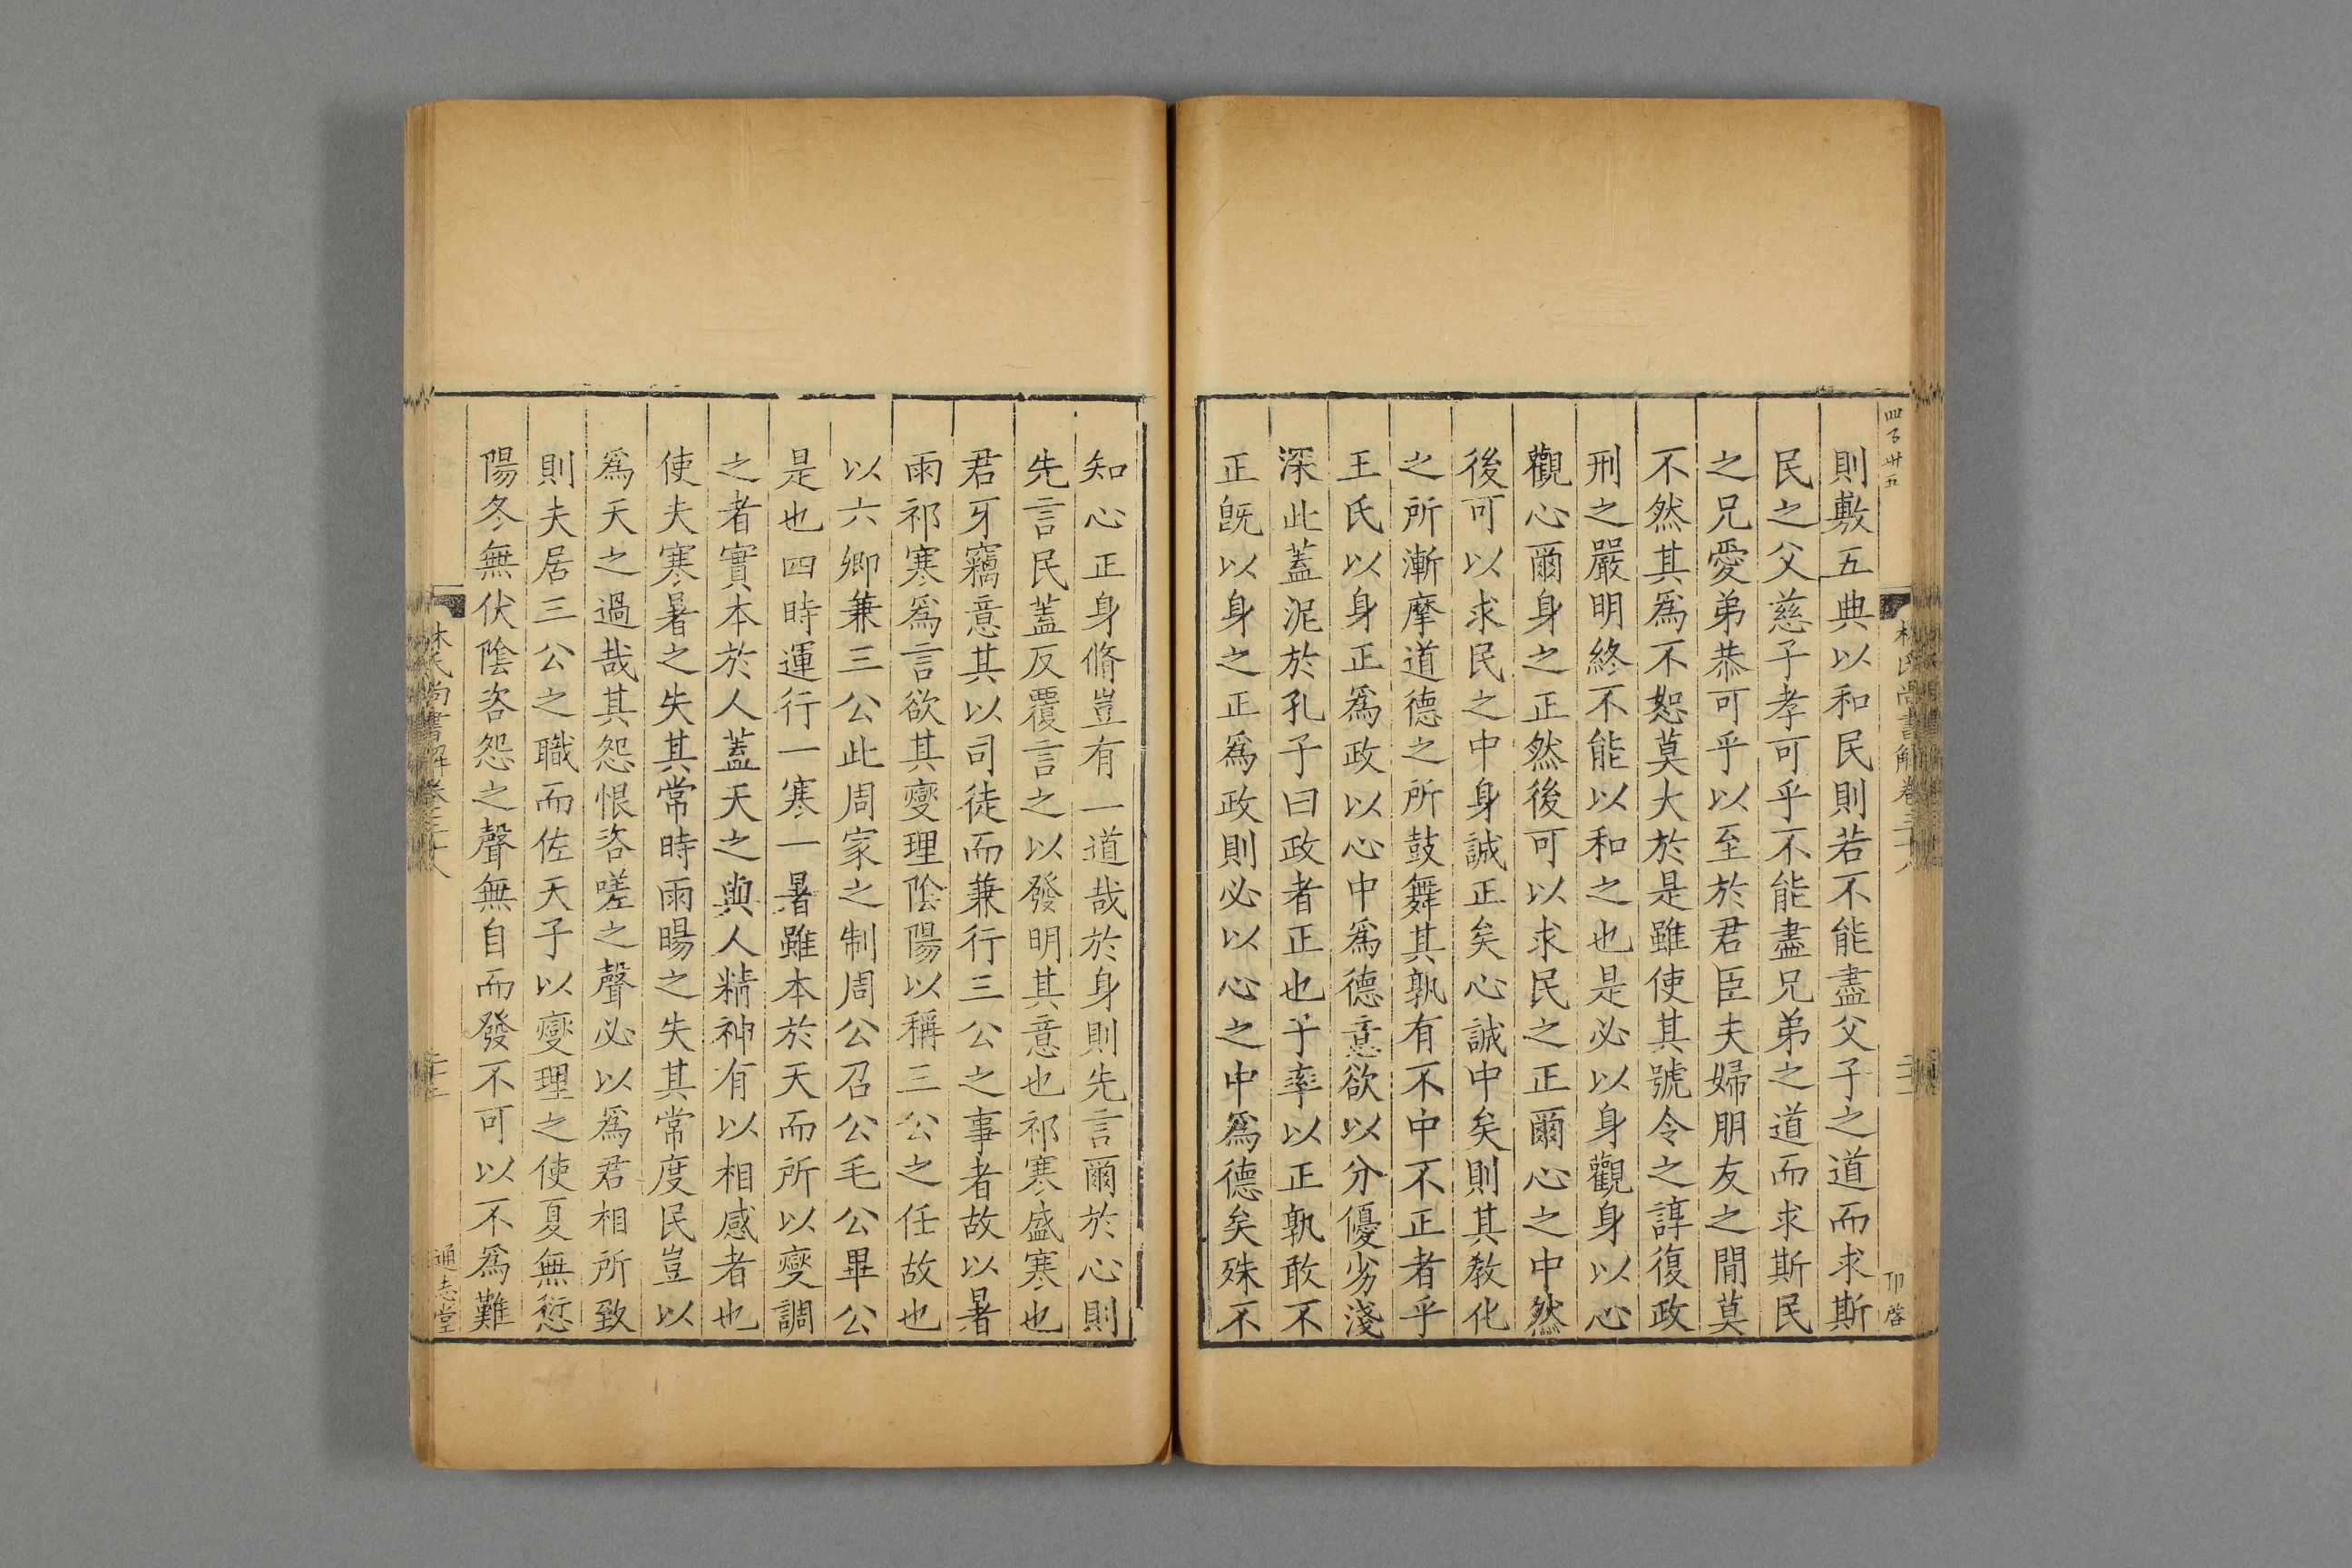 四百卅五
林氏尚書解卷三十八
卭啓
則敷五典以和民則若不能盡父子之道而求斯
民之父慈子孝可乎不能盡兄弟之道而求斯民
之兄愛弟恭可乎以至於君臣夫婦朋友之間莫
不然其爲不恕莫大於是雖使其號令之諄復政
刑之嚴明終不能以和之也是必以身觀身以心
觀心爾身之正然後可以求民之正爾心之中然
後可以求民之中身誠正矣心誠中矣則其教化
之所漸摩道德之所鼓舞其孰有不中不正者乎
王氏以身正爲政以心中爲德意欲以分優劣淺
深此蓋泥於孔子曰政者正也子率以正孰敢不
正旣以身之正爲政則必以心之中爲德矣殊不
知心正身脩豈有一道哉於身則先言爾於心則
先言民蓋反覆言之以發明其意也祁寒盛寒也
君牙竊意其以司徒而兼行三公之事者故以暑
雨祁寒爲言欲其燮理陰陽以稱三公之任故也
以六卿兼三公此周家之制周公召公毛公畢公
是也四時運行一寒一暑雖本於天而所以燮調
之者實本於人蓋天之與人精神有以相感者也
使夫寒暑之失其常時雨暘之失其常度民豈以
爲天之過哉其怨恨咨嗟之聲必以爲君相所致
則夫居三公之職而佐天子以燮理之使夏無愆
陽冬無伏陰咨怨之聲無自而發不可以不爲難
林氏尚書解卷三十八
通志堂